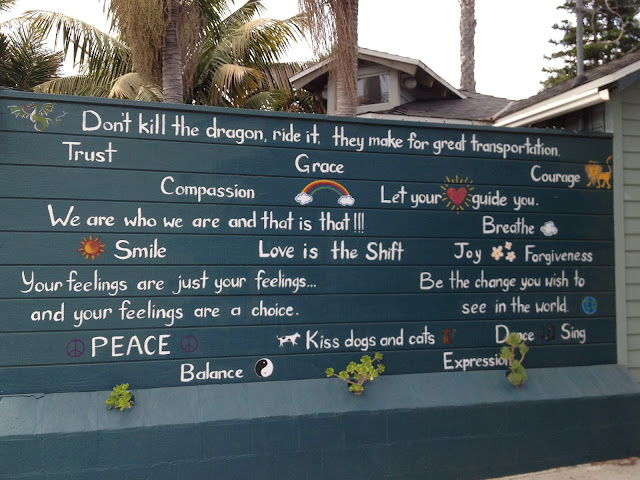 Don't kill the dragon, ride it, they make for great transportation.
Trust
Grace
Courage
Compassion
Let your guide you.
We are who we are and that is that!!!
Breathe
Smile
Love is the Shift
Joy
Forgiveness
Your feelings are just your feelings...
and your feelings are a choice.
Be the change you wish to
see in the world.
PEACE
Kiss dogs and cats
Dance
Sing
Balance
Expression